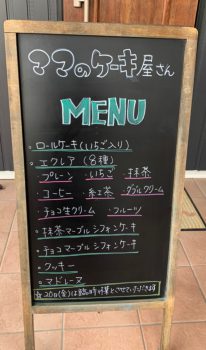 ママのケーキ屋さん
MENU
・ロールケーキ(いちご入り)
・エクレア (8種)
プレーン ・いちご ・抹茶
・コーヒー ・紅茶 ・ダブルクリーム
・チョコ生クリーム ・フルーツ
・抹茶マーブルシフォンケーキ
・チョコマーブルシフォンケーキ
・クッキー
・マドレーヌ
20日(金)は臨時休業とさせていただきます